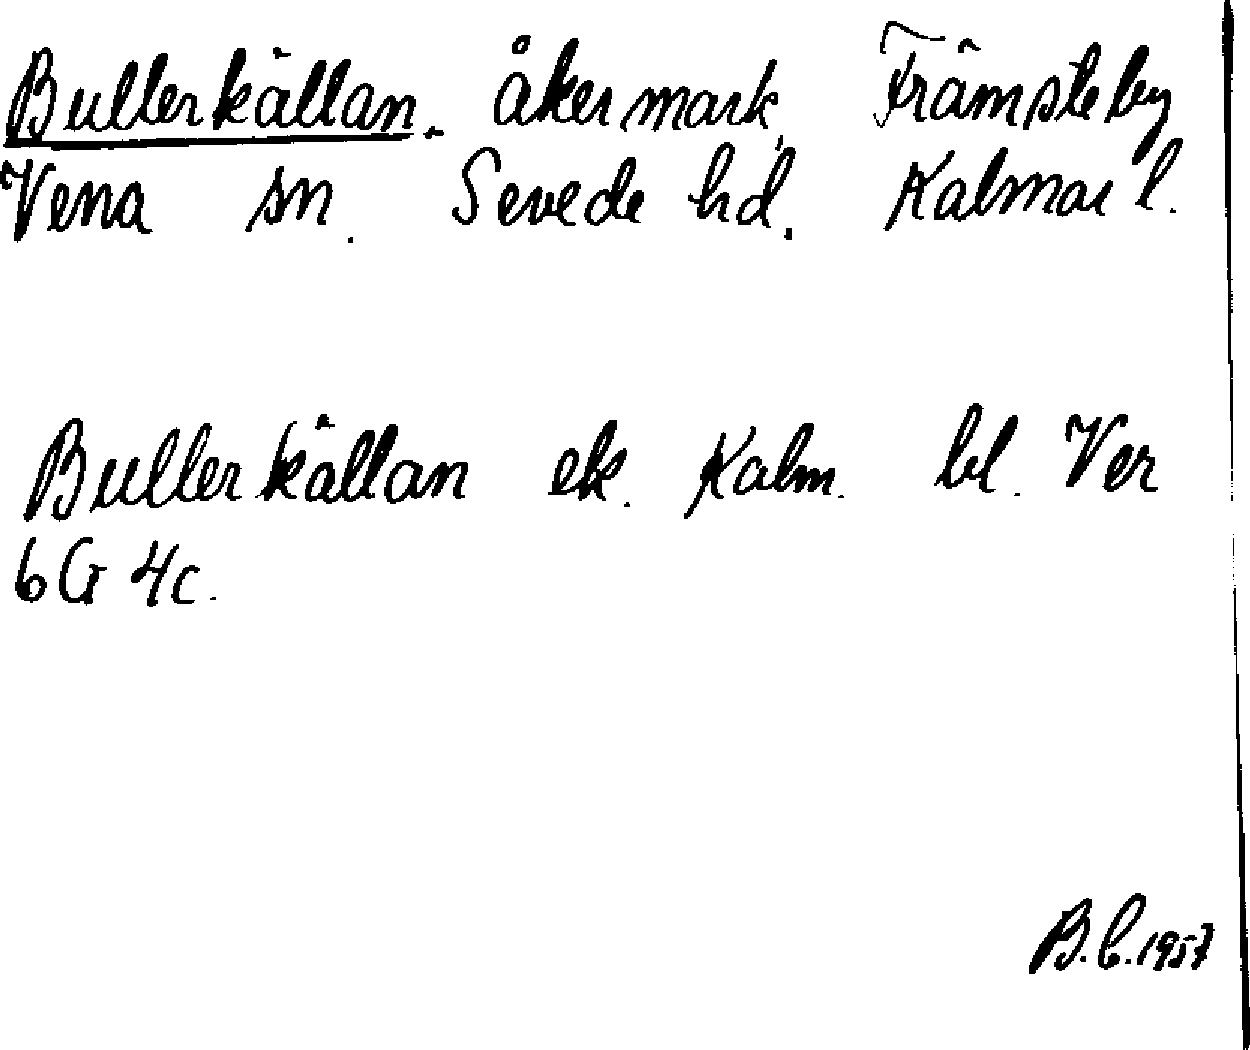 Bullerkällan. åkermark, Främsteby
Vena sn. Sevede hd. Kalmar l.
Bullerkällan ek. Kalm. bl. Ver
6G 4c.
B.C. 1957